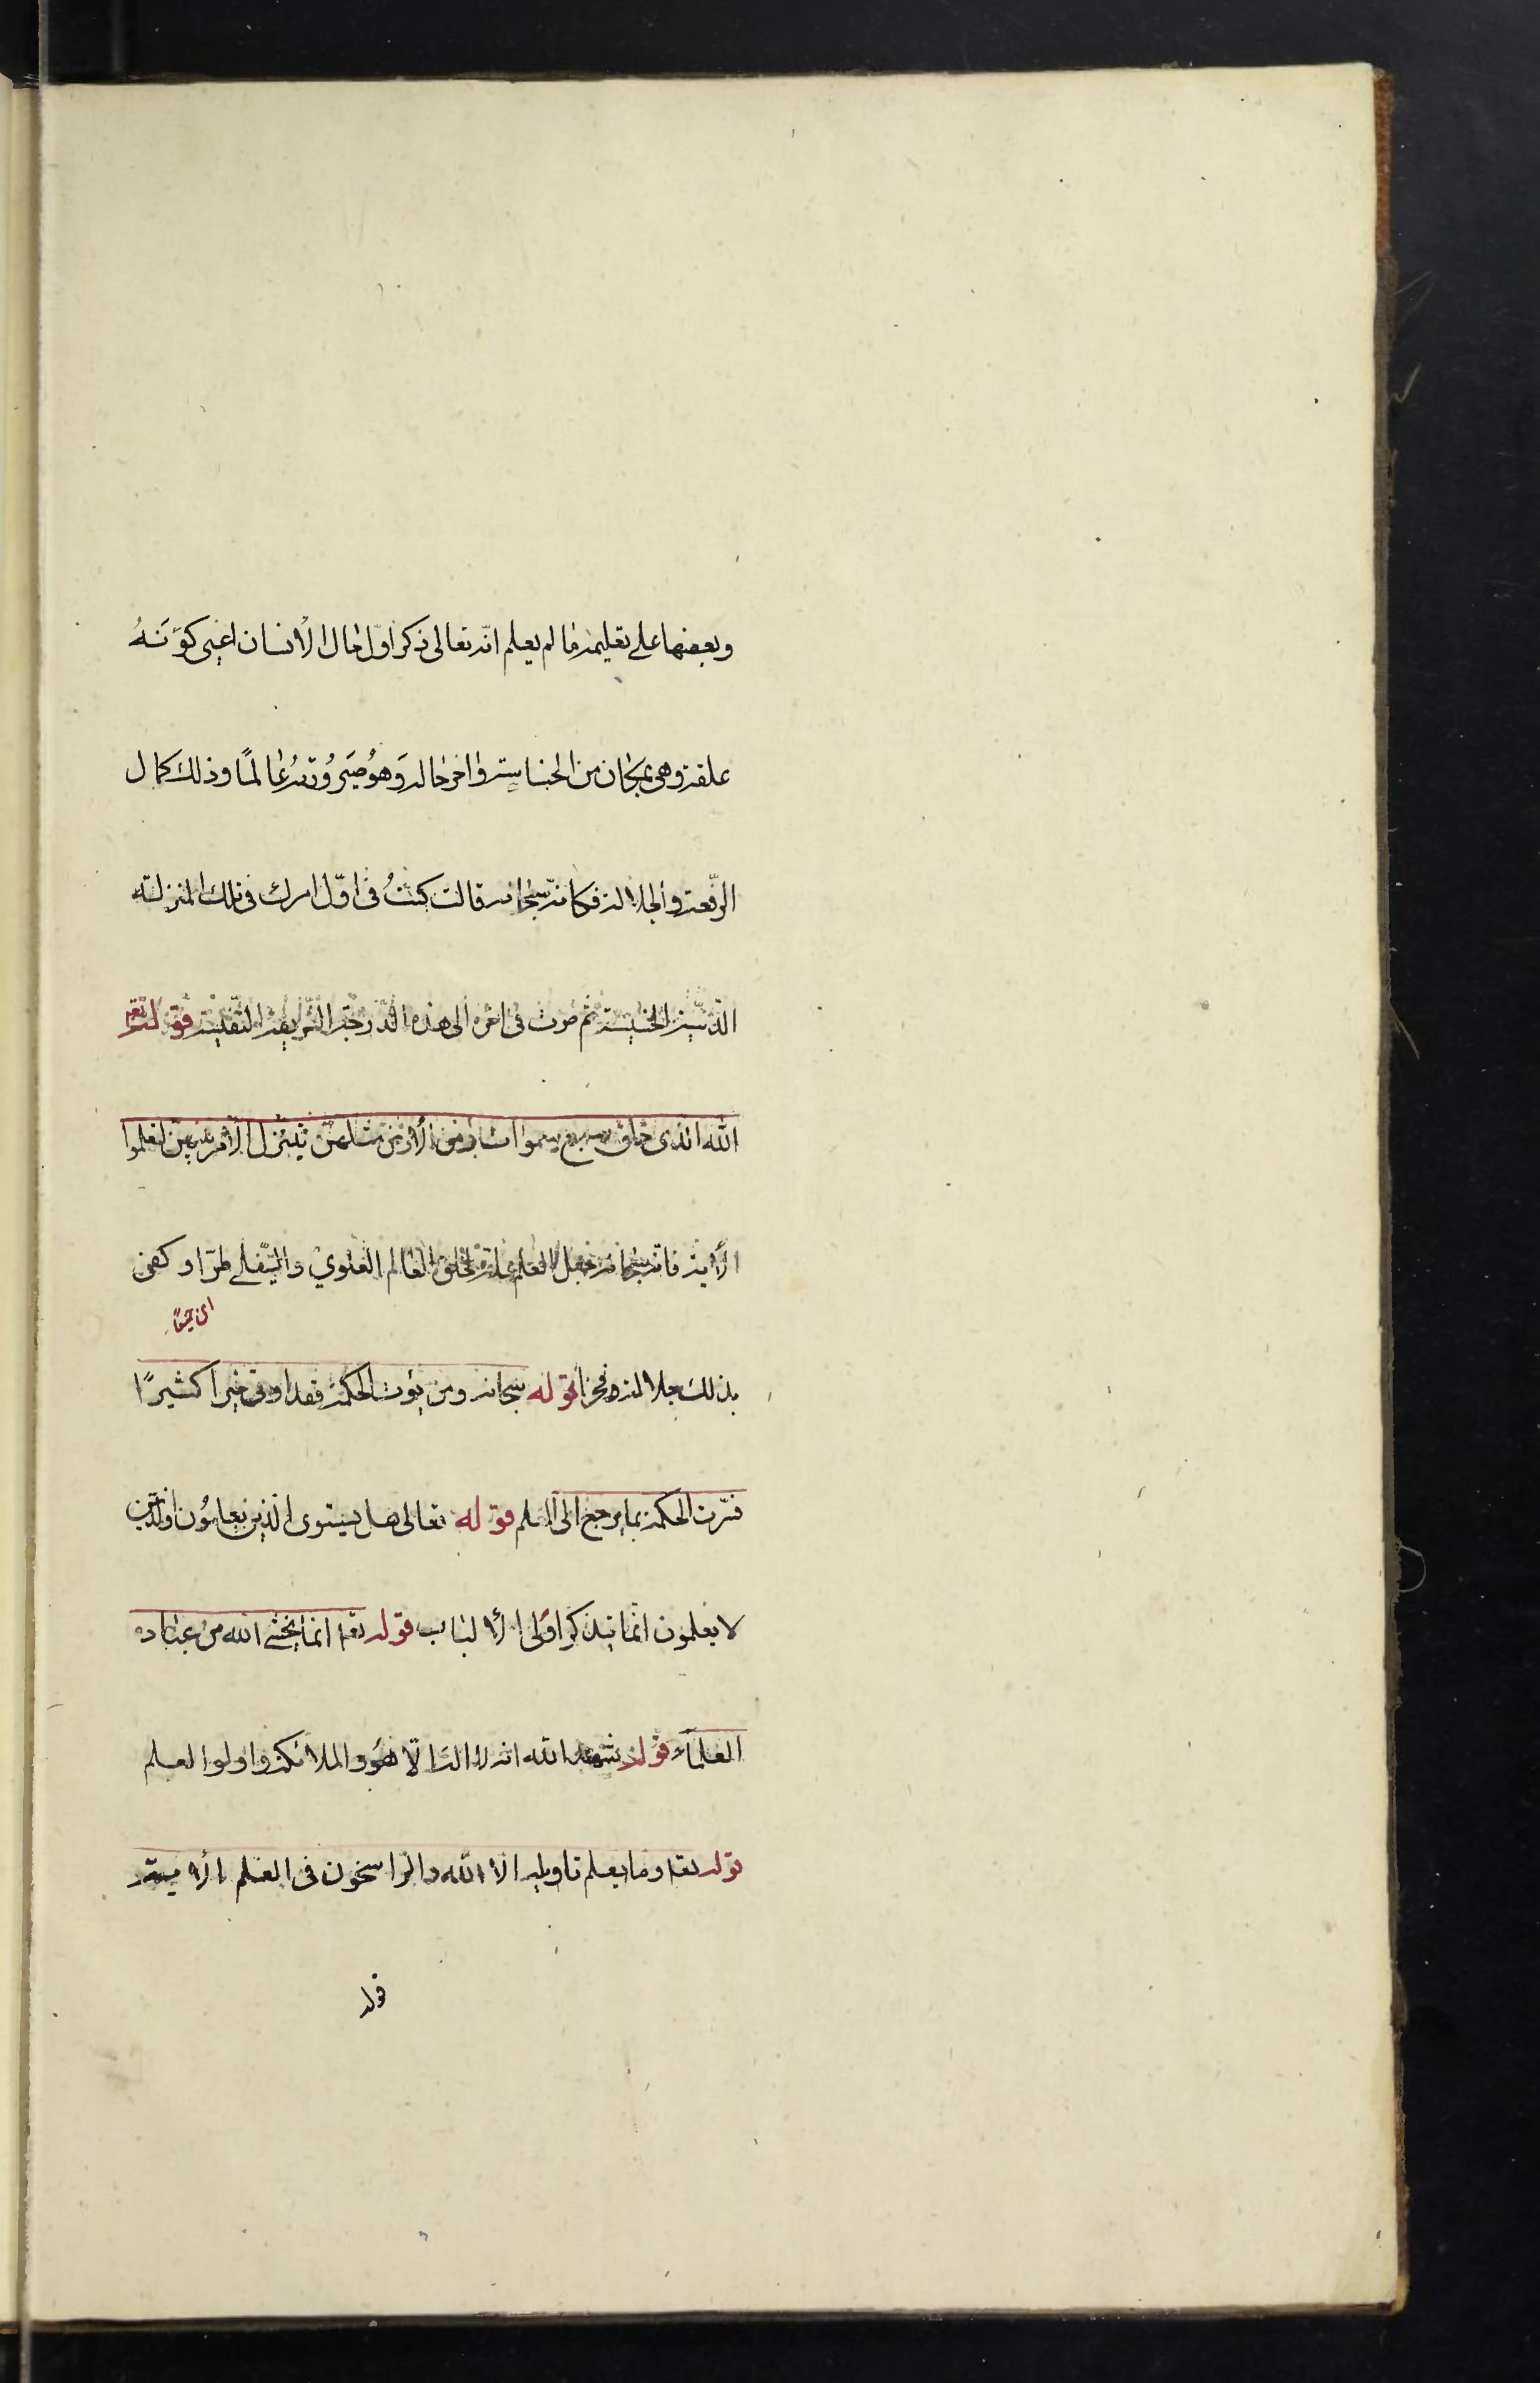 وبعضها على تعليمه ما لم يعلم انّه تعالى ذكر اوّل حال الأنسان اعني كوَنَهُ
علقة وهي بمكان من الخساسة واخر حاله وَهوُ صَيرُورَتهُ عٰالمًا وذلك كمال
الرّفعة والجلالة فكانّه سبحانه قال كنتُ فى اوّل امرك فى تلك المنزلة
الدّنيّة الخسيسة ثم صرت فى اخره الى هذه الدّرجة الشّريفة النّفيسة قوله تعه
الله الّذى خلق سبع سموات ومن الأرض مثلهنّ يتنزل الأمر بينهنّ لتعلموا
الأية فانّه سبحانه جعل العلم علة لخلق العالم العلوي والسّفلي طرّا وكفى
اى جميعًا
بذلك جلالة وفخرا قوله سبحانه ومن يؤت الحكمة فقد اوتى خيرا كثيرًا
فسّرت الحكمة بما يرجع الى العلم قوله تعالى هل يستوى الّذين يعلمُون والّذين
لا يعلمون انّما يتذكر اولى الألباب قوله تعه انما يخشى الله من عباده
العلماء قوله شهد الله انه لا اله الّا هُوَ والملائكة واولوا العلم
قوله تعه وما يعلم تاويله الا الله والراسخون فى العلم الأية
قوله